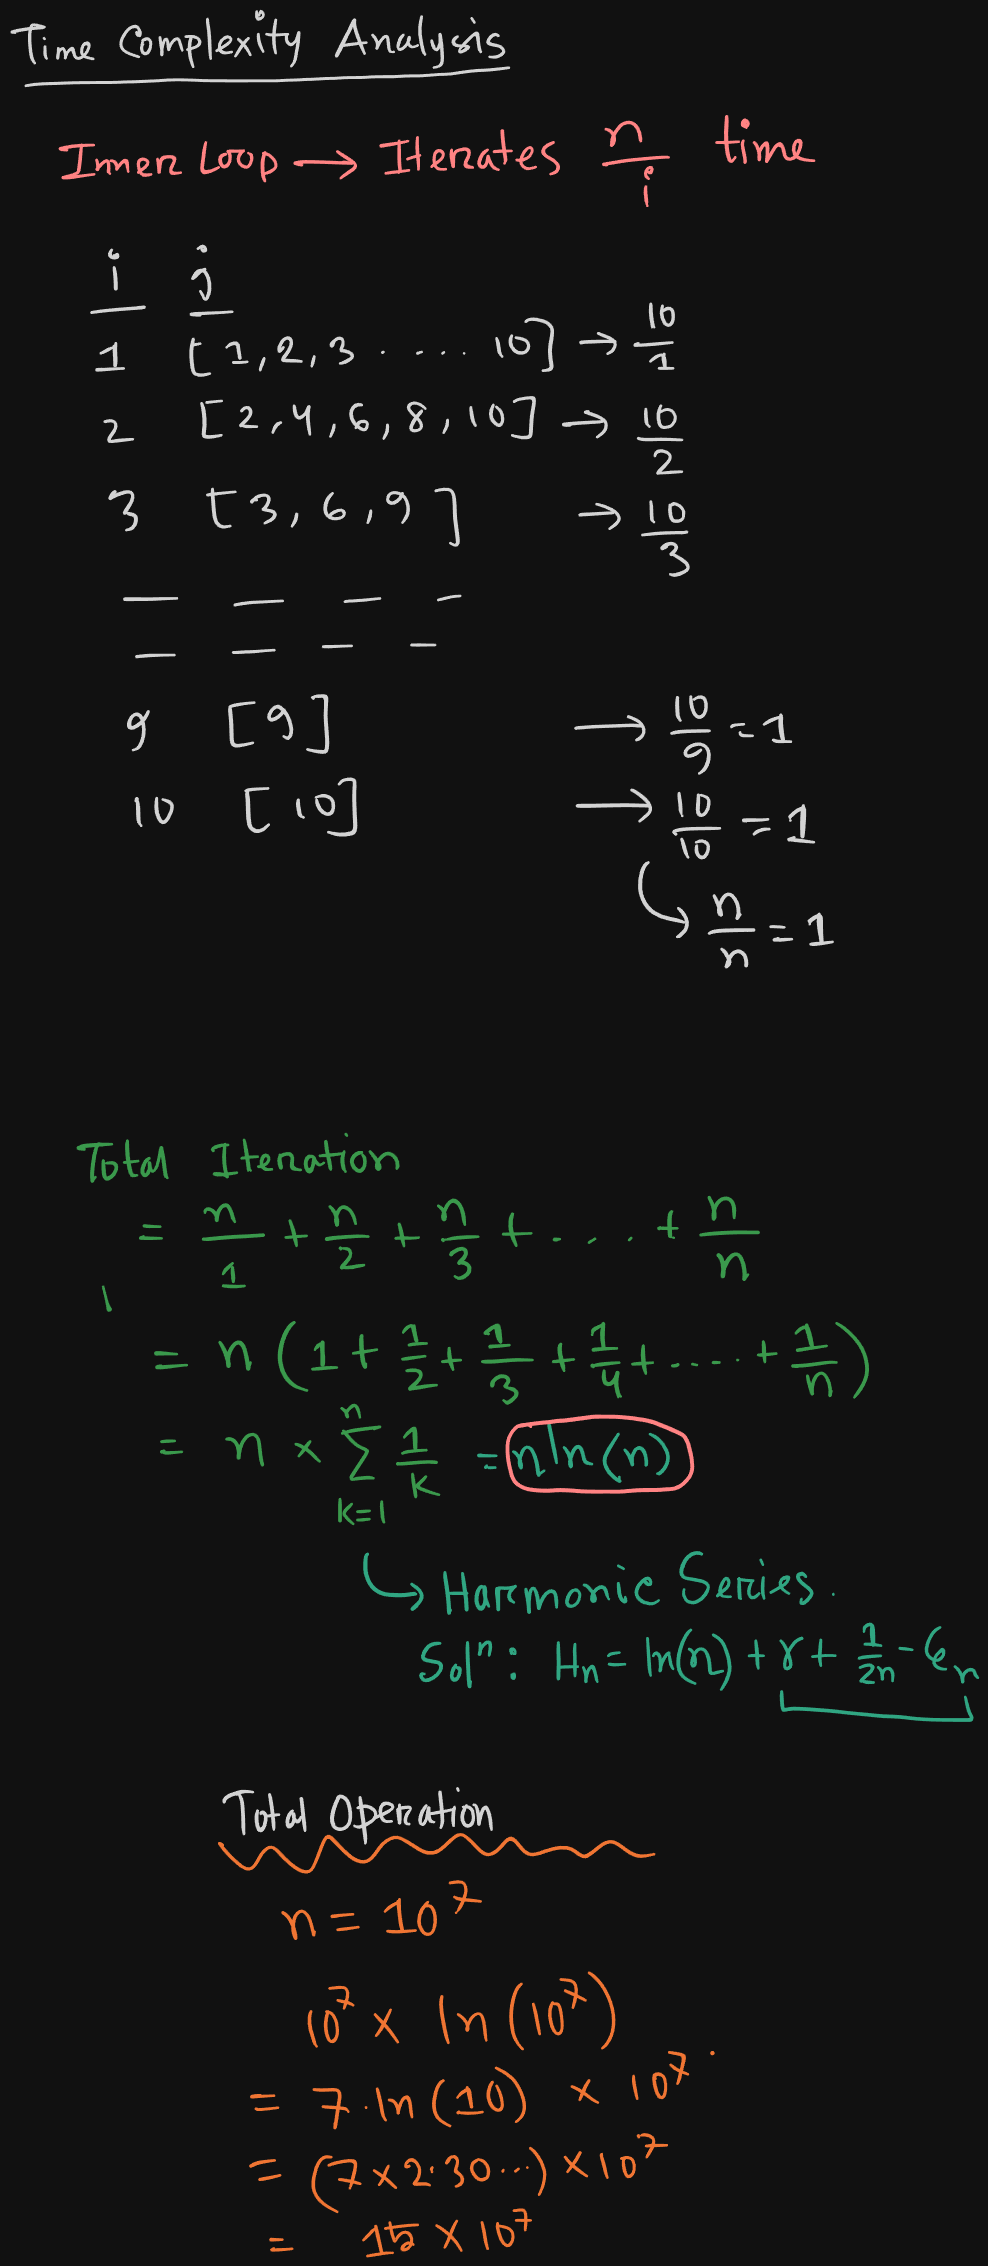 Time Complexity Analysis
Inner Loop → Iterates n/i time
i j
1 [1,2,3 ..... 10] → 10/1
2 [2,4,6,8,10] → 10/2
3 [3,6,9] → 10/3
— — — —
— — — —
9 [9] → 10/9 = 1
10 [10] → 10/10 = 1
↳ n/n = 1
Total Iteration
= n/1 + n/2 + n/3 + .... + n/n
= n (1 + 1/2 + 1/3 + 1/4 + ..... + 1/n)
= n × ∑_{k=1}^{n} 1/k = n ln(n)
↳ Harmonic Series.
Solⁿ: Hₙ = ln(n) + γ + 1/2n - ϵₙ
Total Operation
n = 10⁷
10⁷ × ln(10⁷)
= 7·ln(10) × 10⁷
= (7×2·30...) × 10⁷
= 15 × 10⁷